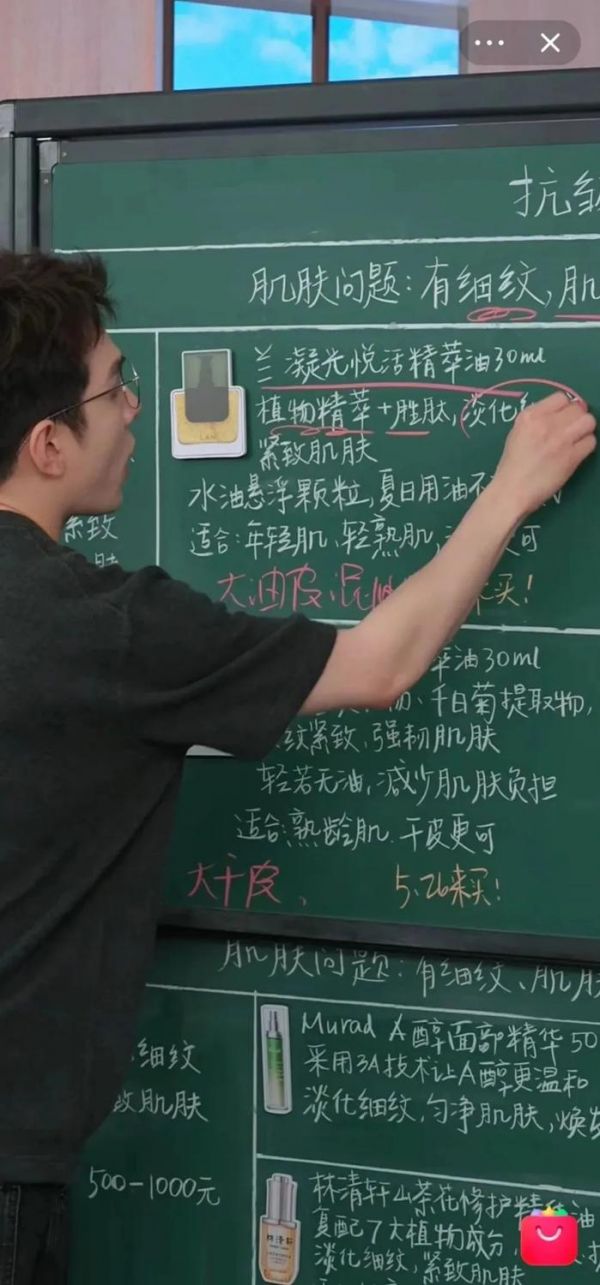 抗
肌肤问题：有细纹，肌
兰凝光悦活精萃油30ml
植物精萃+胜肽，淡化
紧致肌肤
水油悬浮颗粒，夏日用油不
适合：年轻肌、轻熟肌，
可
大油皮，混油
来买！
紧致
肤
萃油30ml
、千白菊提取物，
纹紧致、强韧肌肤
轻若无油，减少肌肤负担
适合：熟龄肌、干皮更可
大干皮、
5.26来买！
肌肤问题：有细纹、肌肤
细纹
致肌肤
500-1000元
Murad A醇面部精华50
采用3A技术让A醇更温和
淡化细纹，匀净肌肤，焕
林清轩山茶花修护精华油
复配7大植物成分，
淡化细纹，紧致肌肤